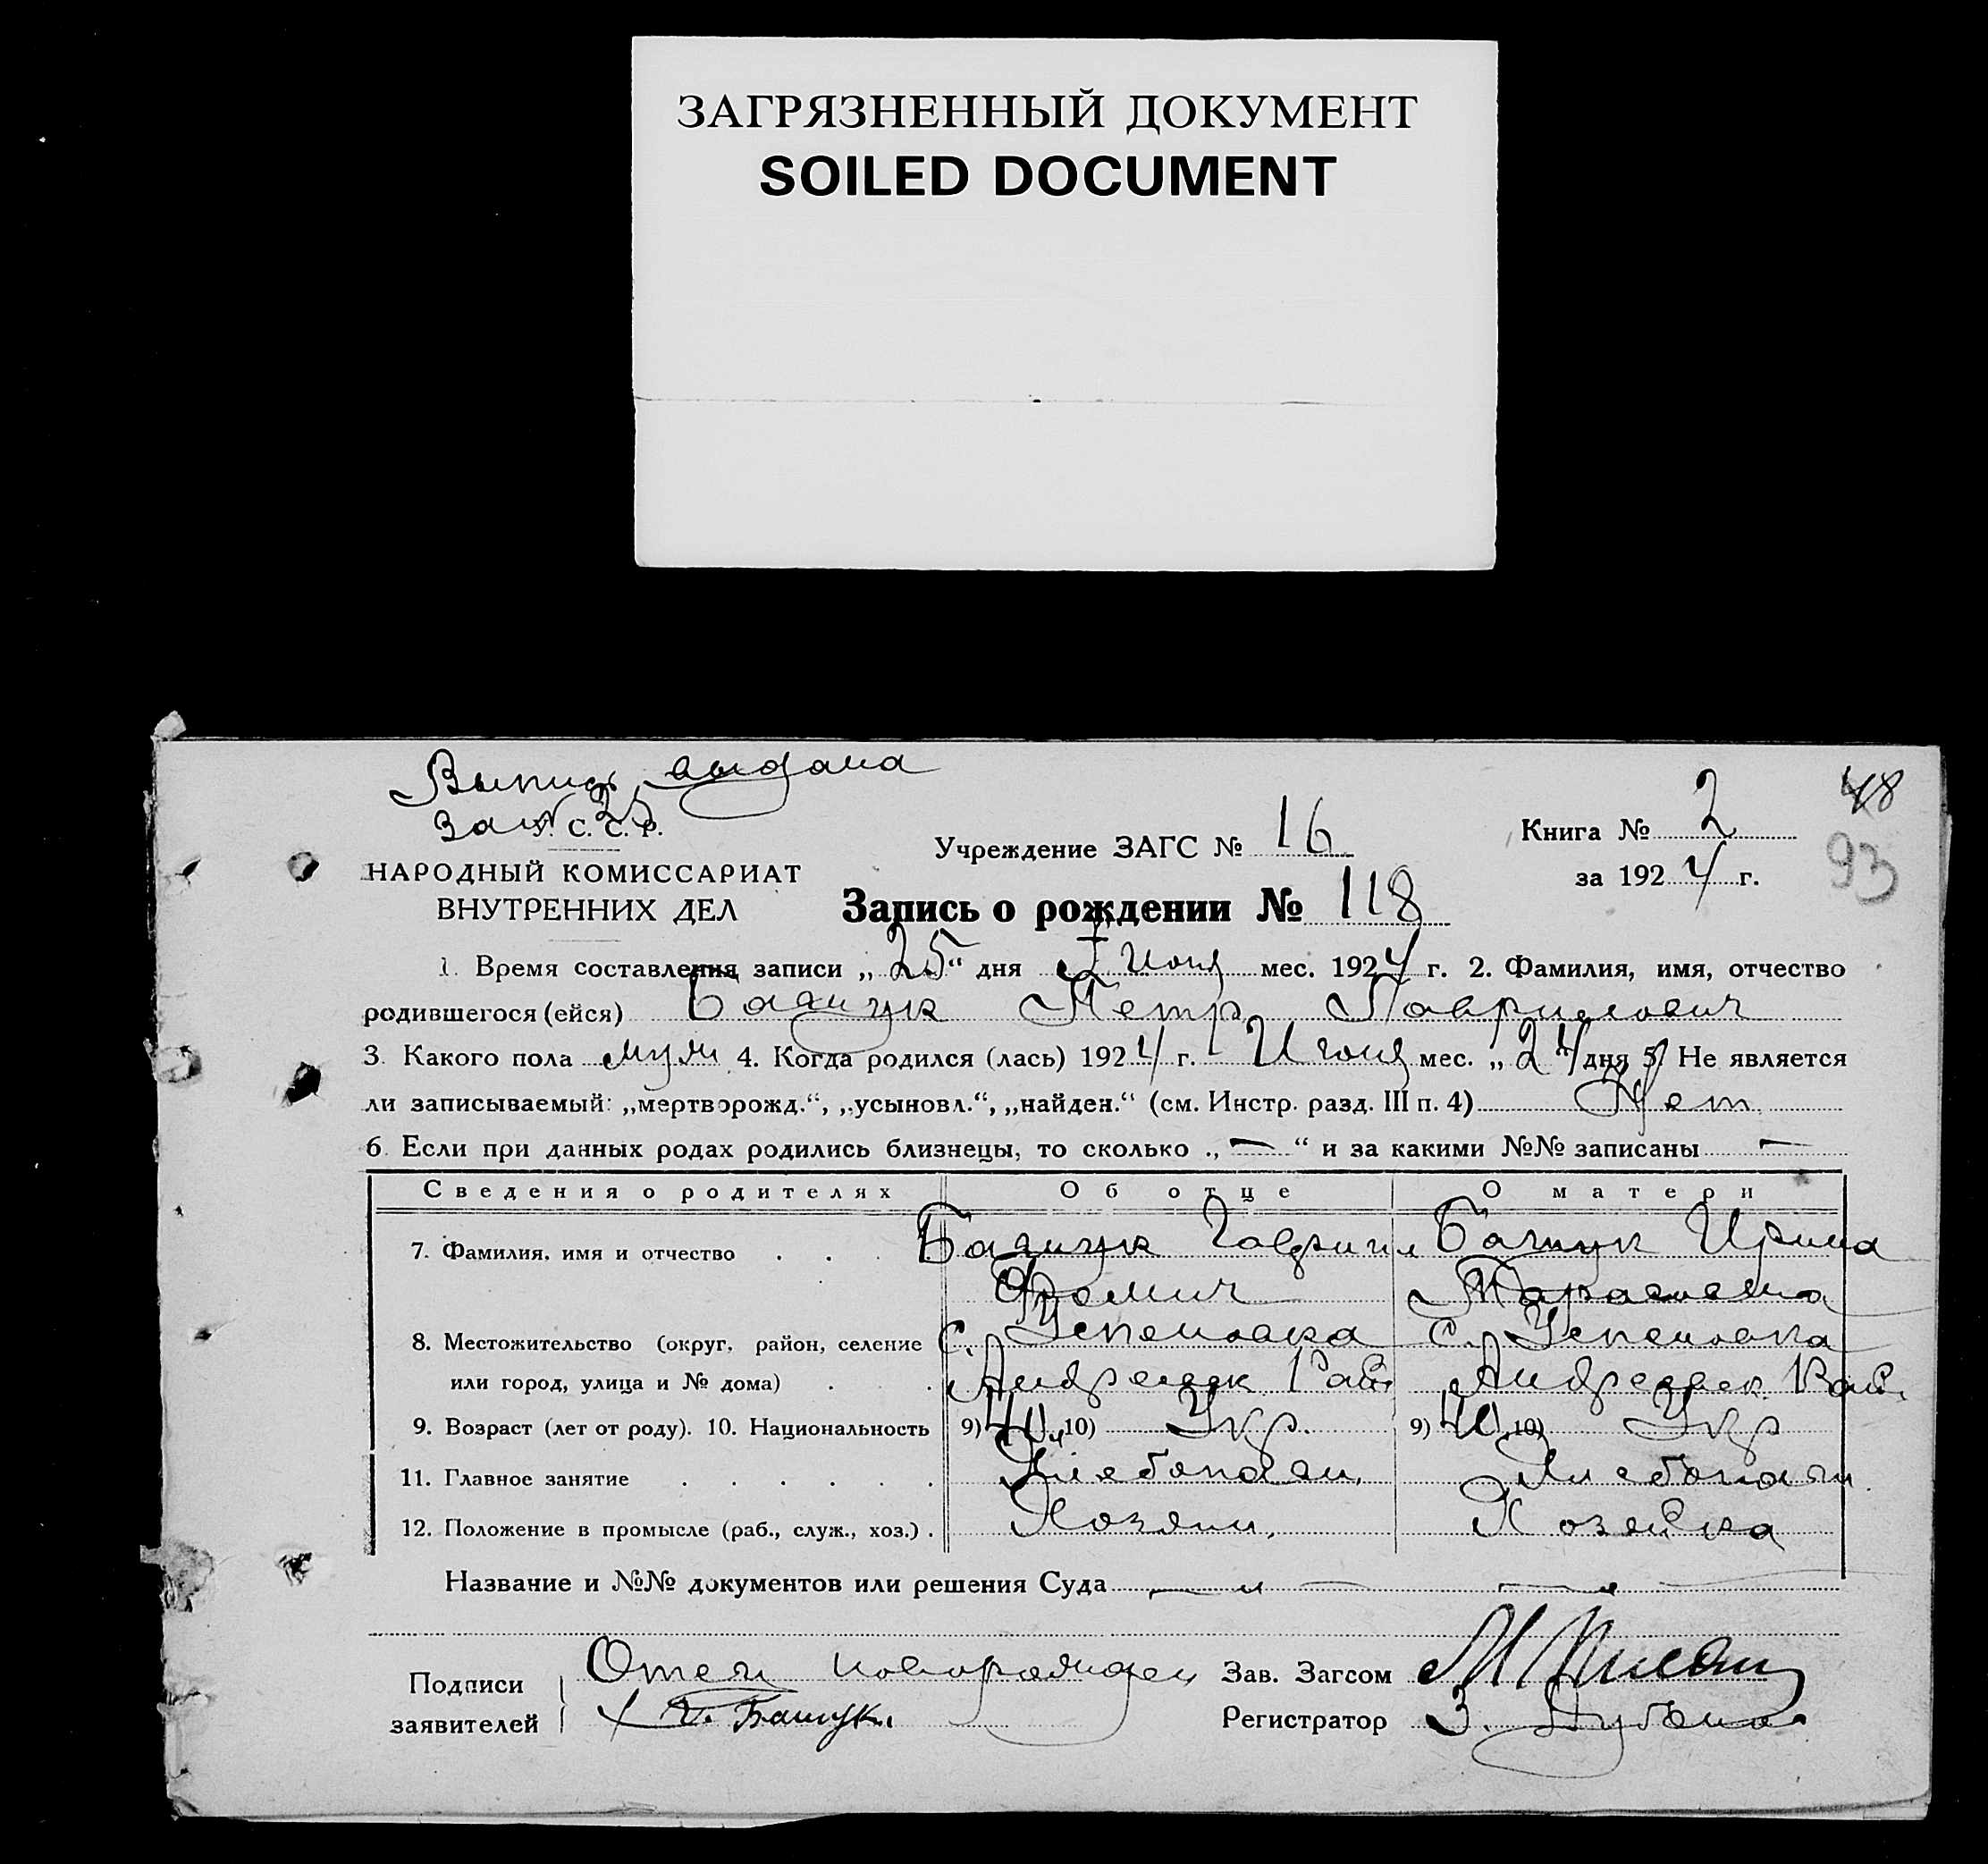 ЗАГРЯЗНЕННЫЙ ДОКУМЕНТ
SOILED DOCUMENT
Выпись выдана
48
У. С. С. Р.
Учреждение ЗАГС № 16
Книга № 2
93
НАРОДНЫЙ КОМИССАРИАТ
за 1924 г.
ВНУТРЕННИХ ДЕЛ
Запись о рождении № 118
1. Время составления записи „25“ дня Июня мес. 1924 г. 2. Фамилия, имя, отчество
родившегося (ейся) Башук Петр Гаврилович
3. Какого пола муж 4. Когда родился (лась) 1924 г. Июня мес. „24“ дня, 5. Не является
ли записываемый: „мертворожд.“, „усыновл.“, „найден.“ (см. Инстр. разд. III п. 4) Нет
6. Если при данных родах родились близнецы, то сколько „—“ и за какими №№ записаны —
Сведения о родителях Об отце О матери
7. Фамилия, имя и отчество Башук Гавриил Башук Ирина
Фомич Тарасовна
8. Местожительство (округ, район, селение С. Успеновка С. Успеновка
или город, улица и № дома) Андреевск. Рай. Андреевск. Рай.
9. Возраст (лет от роду). 10. Национальность 9) 40 10) Укр. 9) 40 10) Укр
11. Главное занятие Хлебопаш. Хлебопаш.
12. Положение в промысле (раб., служ., хоз.) Хозяин. Хозяйка
Название и №№ документов или решения Суда — „ — — „ —
Подписи
заявителей
Отец новорожден
Г. Башук.
Зав. Загсом
Регистратор З.